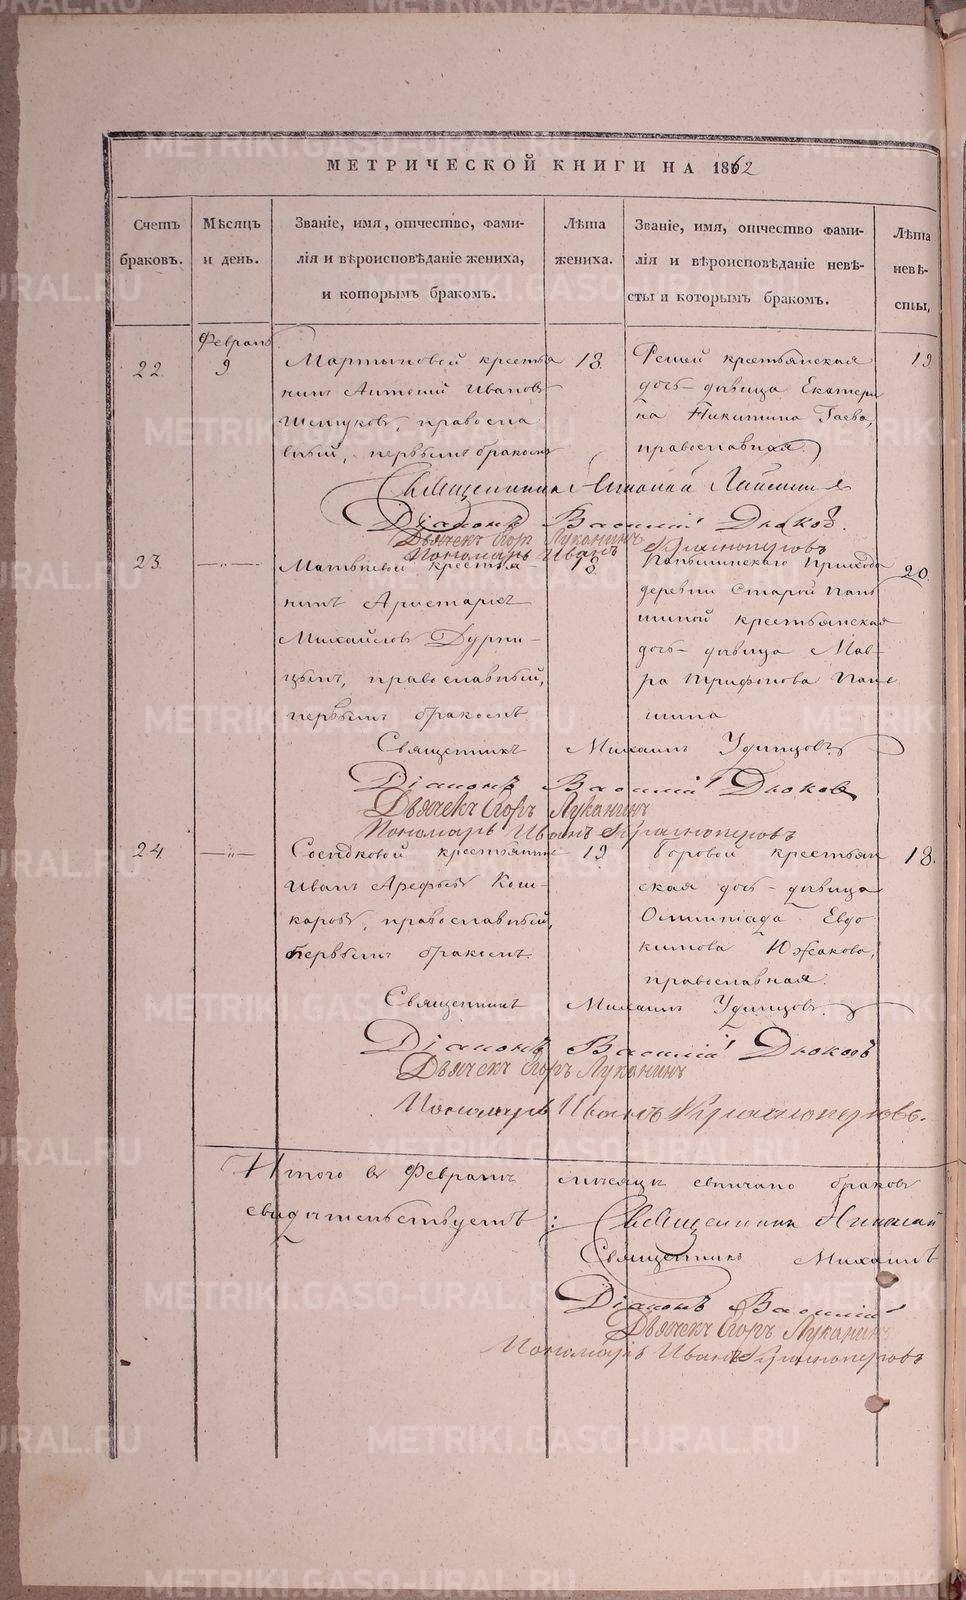 МЕТРИЧЕСКОЙ КНИГИ НА 1862
Счетъ браковъ.
Мѣсяцъ и день.
Званіе, имя, отчество, фами-
лія и вѣроисповѣданіе жениха,
и которымъ бракомъ.
Лѣта жениха.
Званіе, имя, отчество фами-
лія и вѣроисповѣданіе невѣ-
сты и которымъ бракомъ.
Лѣта невѣ-
сты,
22
Феврал
9
Мартыновой крестья
нинъ Антоній Ивановъ
Шешуковъ, правосла
вный, первымъ бракомъ
18
крестьянская
дочь - дѣвица Екатери
на Никитина Гаева,
православная
19
Священникъ
Діаконъ Василій Дьяковъ.
Дьячекъ Егоръ Луканинъ
Пономарь Иванъ Красноперовъ
23
крестья-
нинъ Аристархъ
Михайловъ Дурни-
цынъ, православный,
первымъ бракомъ
18
прихода
деревни Старой Пань
шиной крестьянская
дочь - дѣвица Мав-
ра Трифонова Пань
шина
20
Священникъ Михаилъ Удинцовъ
Діаконъ Василій Дьяковъ
Дьячекъ Егоръ Луканинъ
Пономарь Иванъ Красноперовъ
24
крестьянинъ
Иванъ Арефьевъ Кош-
каровъ, православный,
первымъ бракомъ
19
Боровой крестьян
ская дочь - дѣвица
Олимпіада Евдо
кимова Южакова,
православная.
18.
Священникъ Михаилъ Удинцовъ.
Діаконъ Василій Дьяковъ
Дьячекъ Егоръ Луканинъ
Пономарь Иванъ Красноперовъ.
Итого въ Февралѣ мѣсяцѣ вѣнчано браковъ
свидѣтельствуетъ: Священникъ Николай
Священникъ Михаилъ
Діаконъ Василій
Дьячекъ Егоръ Луканинъ
Пономарь Иванъ Красноперовъ
METRIKI.GASO-URAL.RU